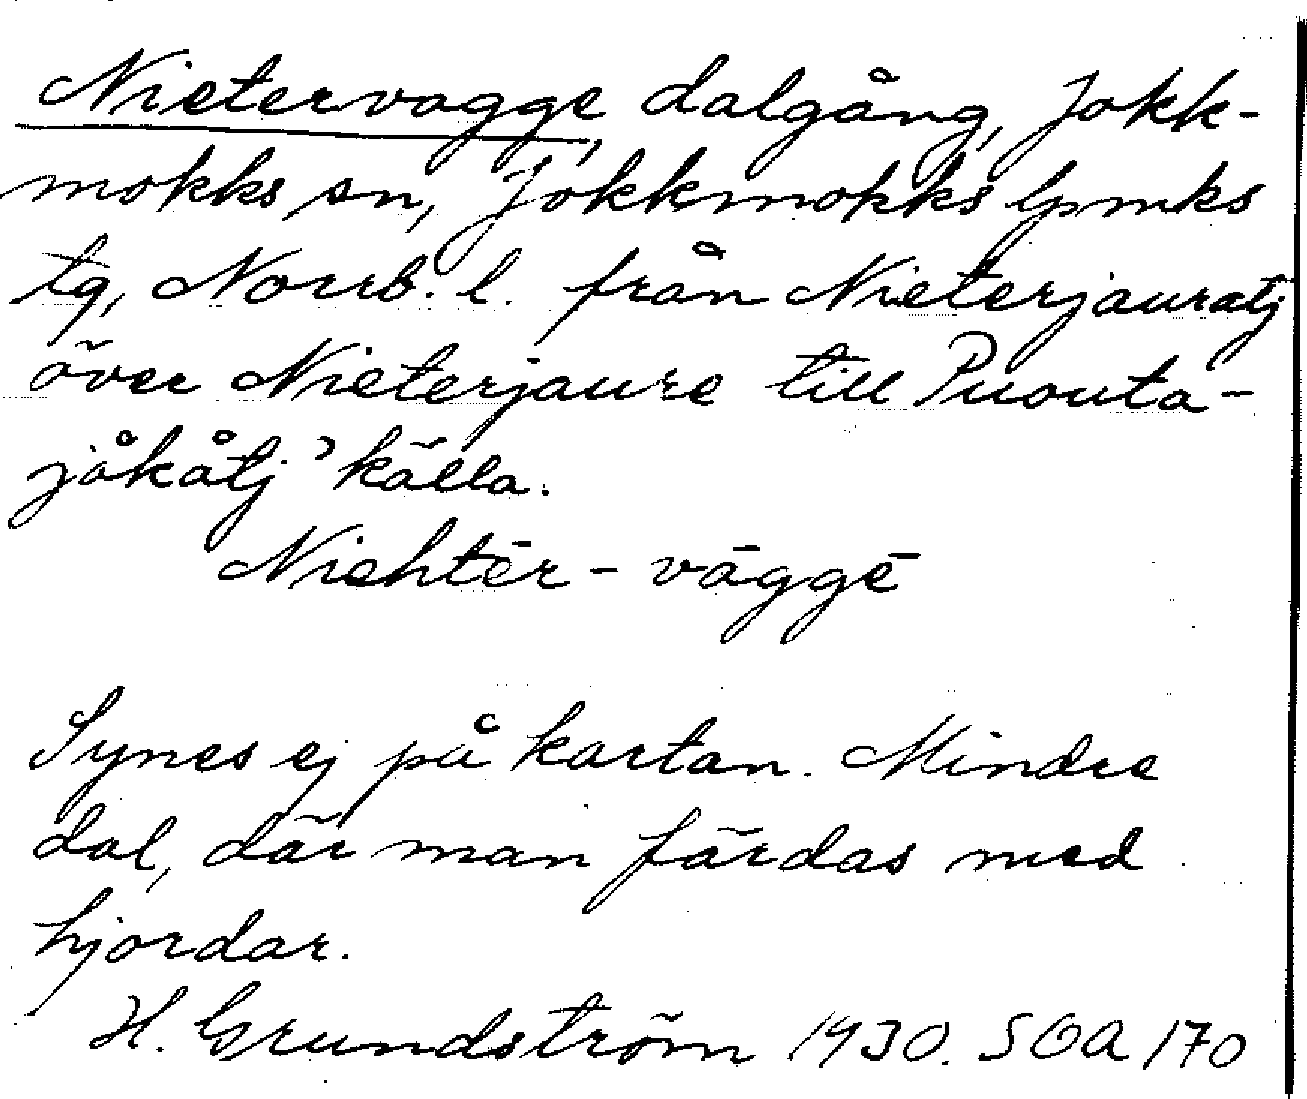 Nietervagge, dalgång, Jokk-
mokks sn, Jokkmokks lpmks
tg, Norrb. l. från Nieterjauratj
över Nieterjaure till Puouta-
jåkåtj' källa.
Niehtēr - vāggē
Synes ej på kartan. Mindre
dal, där man färdas med
hjordar.
H. Grundström 1930. SOA 170